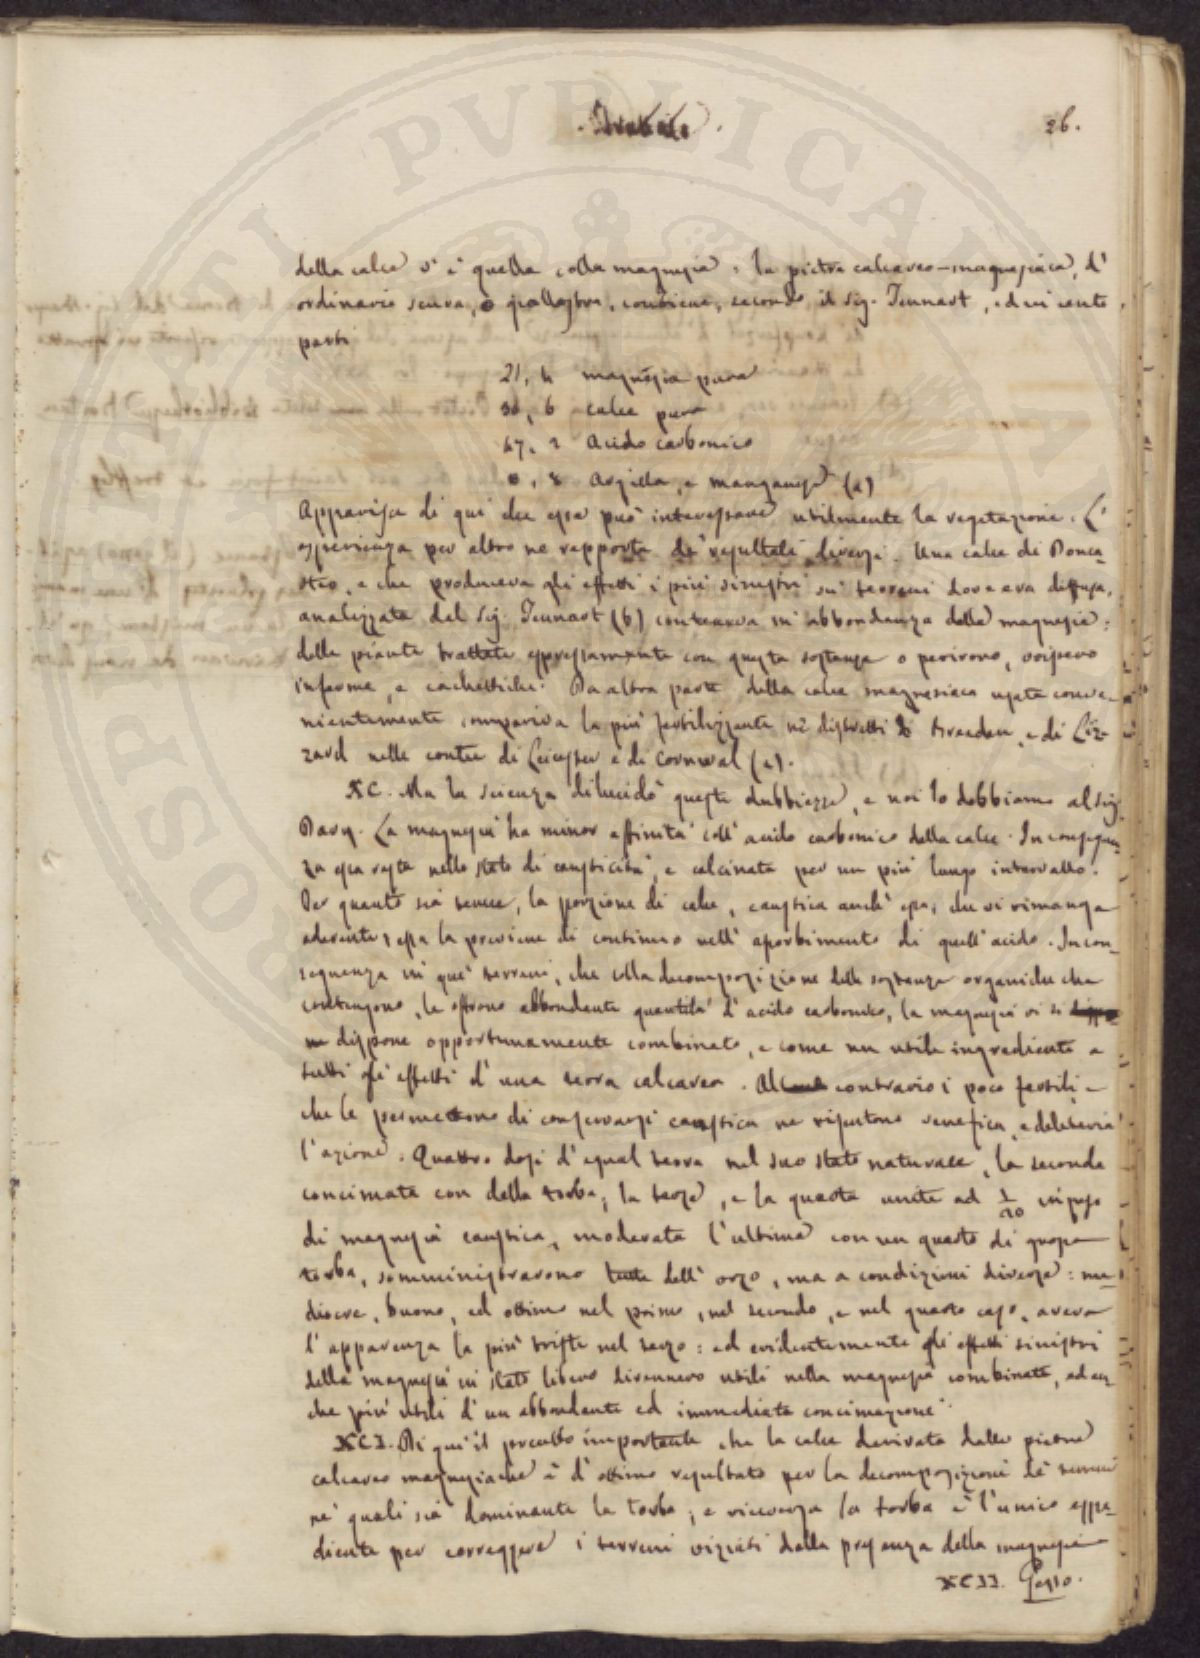 26.
della calce v' è quella colla magnesia: la pietra calcareo-magnesiaca, d'
ordinario scura, o giallastra, contiene, secondo il Sig. Tennart, ed in cento
parti
21, 4 magnesia pura
30, 6 calce pura
47, 2 Acido carbonico
0, 8 Argilla, e manganese (a)
Apparisca di qui che essa può interessare utilmente la vegetazione. L'
esperienza per altro ne rapporta de' resultati diversi. Una calce di Donca-
ster, e che produceva gli effetti i più sinistri su' terreni dove era diffusa,
analizzata del Sig. Tennart (b) conteneva in abbondanza della magnesia:
delle piante trattate espressamente con questa sostanza o perirono, o
inferme, e cachettiche. Da altra parte della calce magnesiaca usata conve-
nientemente compariva la più fertilizzante ne' distretti di Breeden, e di Liz-
zard nelle contee di Leicester e di Cornwal (c).
XC. Ma la scienza dilucidò queste dubbiezze, e noi lo dobbiamo al Sig.
Davy. La magnesia ha minor affinità coll' acido carbonico della calce. In conseguen-
za essa resta nello stato di causticità, e calcinata per un più lungo intervallo.
Per quanto sia tenue, la porzione di calce, caustica anch' essa, che vi rimanga
aderente, essa la previene di continuo nell' assorbimento di quell' acido. In con-
seguenza in que' terreni, che colla decomposizione delle sostanze organiche che
contengono, le offrono abbondante quantità d' acido carbonico, la magnesia vi si
dispone opportunamente combinata, e come un utile ingrediente a
tutti gli effetti d' una terra calcarea. Al contrario i poco fertili
che le permettono di conservarsi caustica ne risentono venefica, e deleteria
l' azione. Quattro dosi d' egual terra nel suo stato naturale, la seconda
concimata con della torba, la terza, e la quarta unite ad 1/20 in peso
di magnesia caustica, moderata l' ultima con un quarto di grossa
torba, somministrarono tutte dell' orzo, ma a condizioni diverse: me-
diocre, buono, ed ottimo nel primo, nel secondo, e nel quarto caso, aveva
l' apparenza la più triste nel terzo: ed evidentemente gli effetti sinistri
della magnesia in stato libero divennero utili nella magnesia combinata, ed an-
che più utili d' un abbondante ed immediata concimazione.
XCI. Di qui il precetto importante che la calce derivata dalle pietre
calcareo magnesiache è d' ottimo resultato per la decomposizioni de' terreni
ne' quali sia dominante la torba; e viceversa la torba è l' unico espe-
diente per correggere i terreni viziati dalla presenza della magnesia
XCII. Gesso.